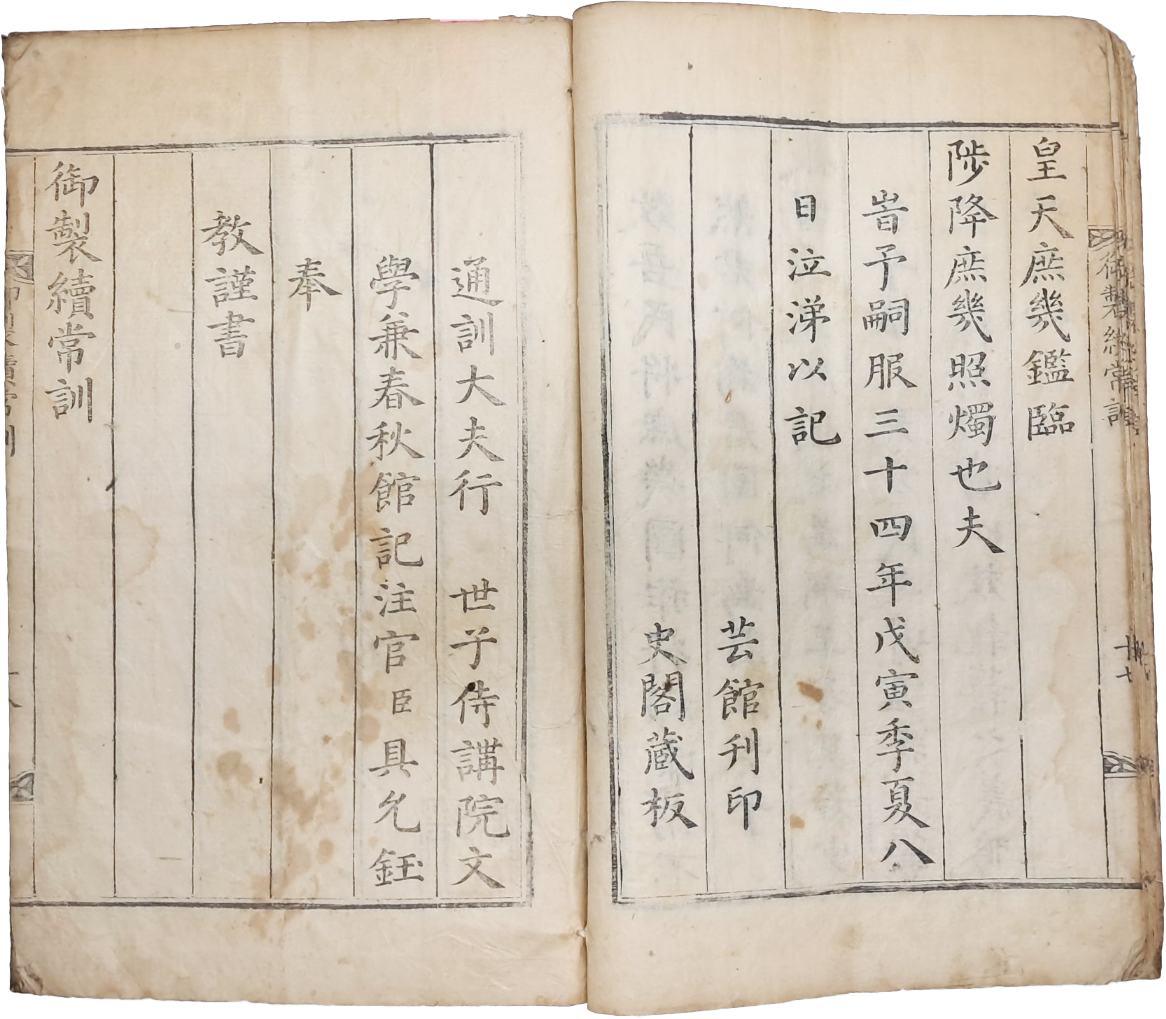 皇天庶幾鑑臨
陟降庶幾照燭也夫
旹予嗣服三十四年戊寅季夏八
日泣涕以記
芸館刊印
史閣蔵板
通訓大夫行 世子侍講院文
學兼春秋館記注官臣具允鈺
奉
教謹書
御製續常訓